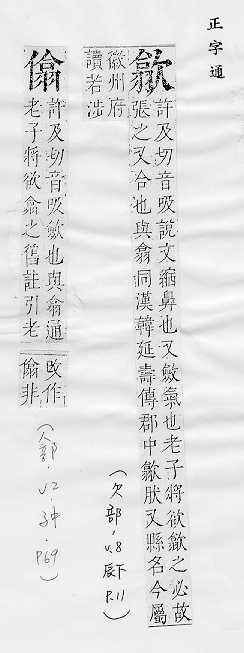 正字通
歙
許及切音吸說文縮鼻也又斂氣也老子將欲歙之必故
張之又合也與翕同漢韓延壽傳郡中歙肰又縣名今屬
徽州府
讀若涉
(欠部,v.8
辰下
P.11)
僋
許及切音吸斂也與翕通
老子將欲翕之舊註引老
改作
僋非
(人部,v2,子中,P.69)